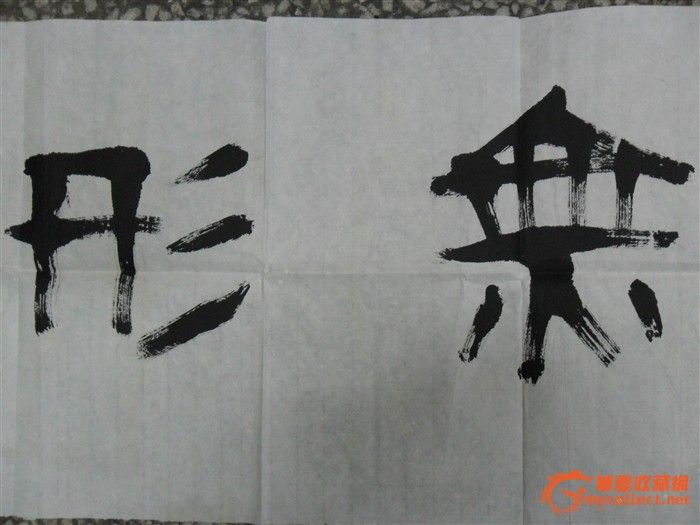 無形
華夏收藏網
mycollect.net